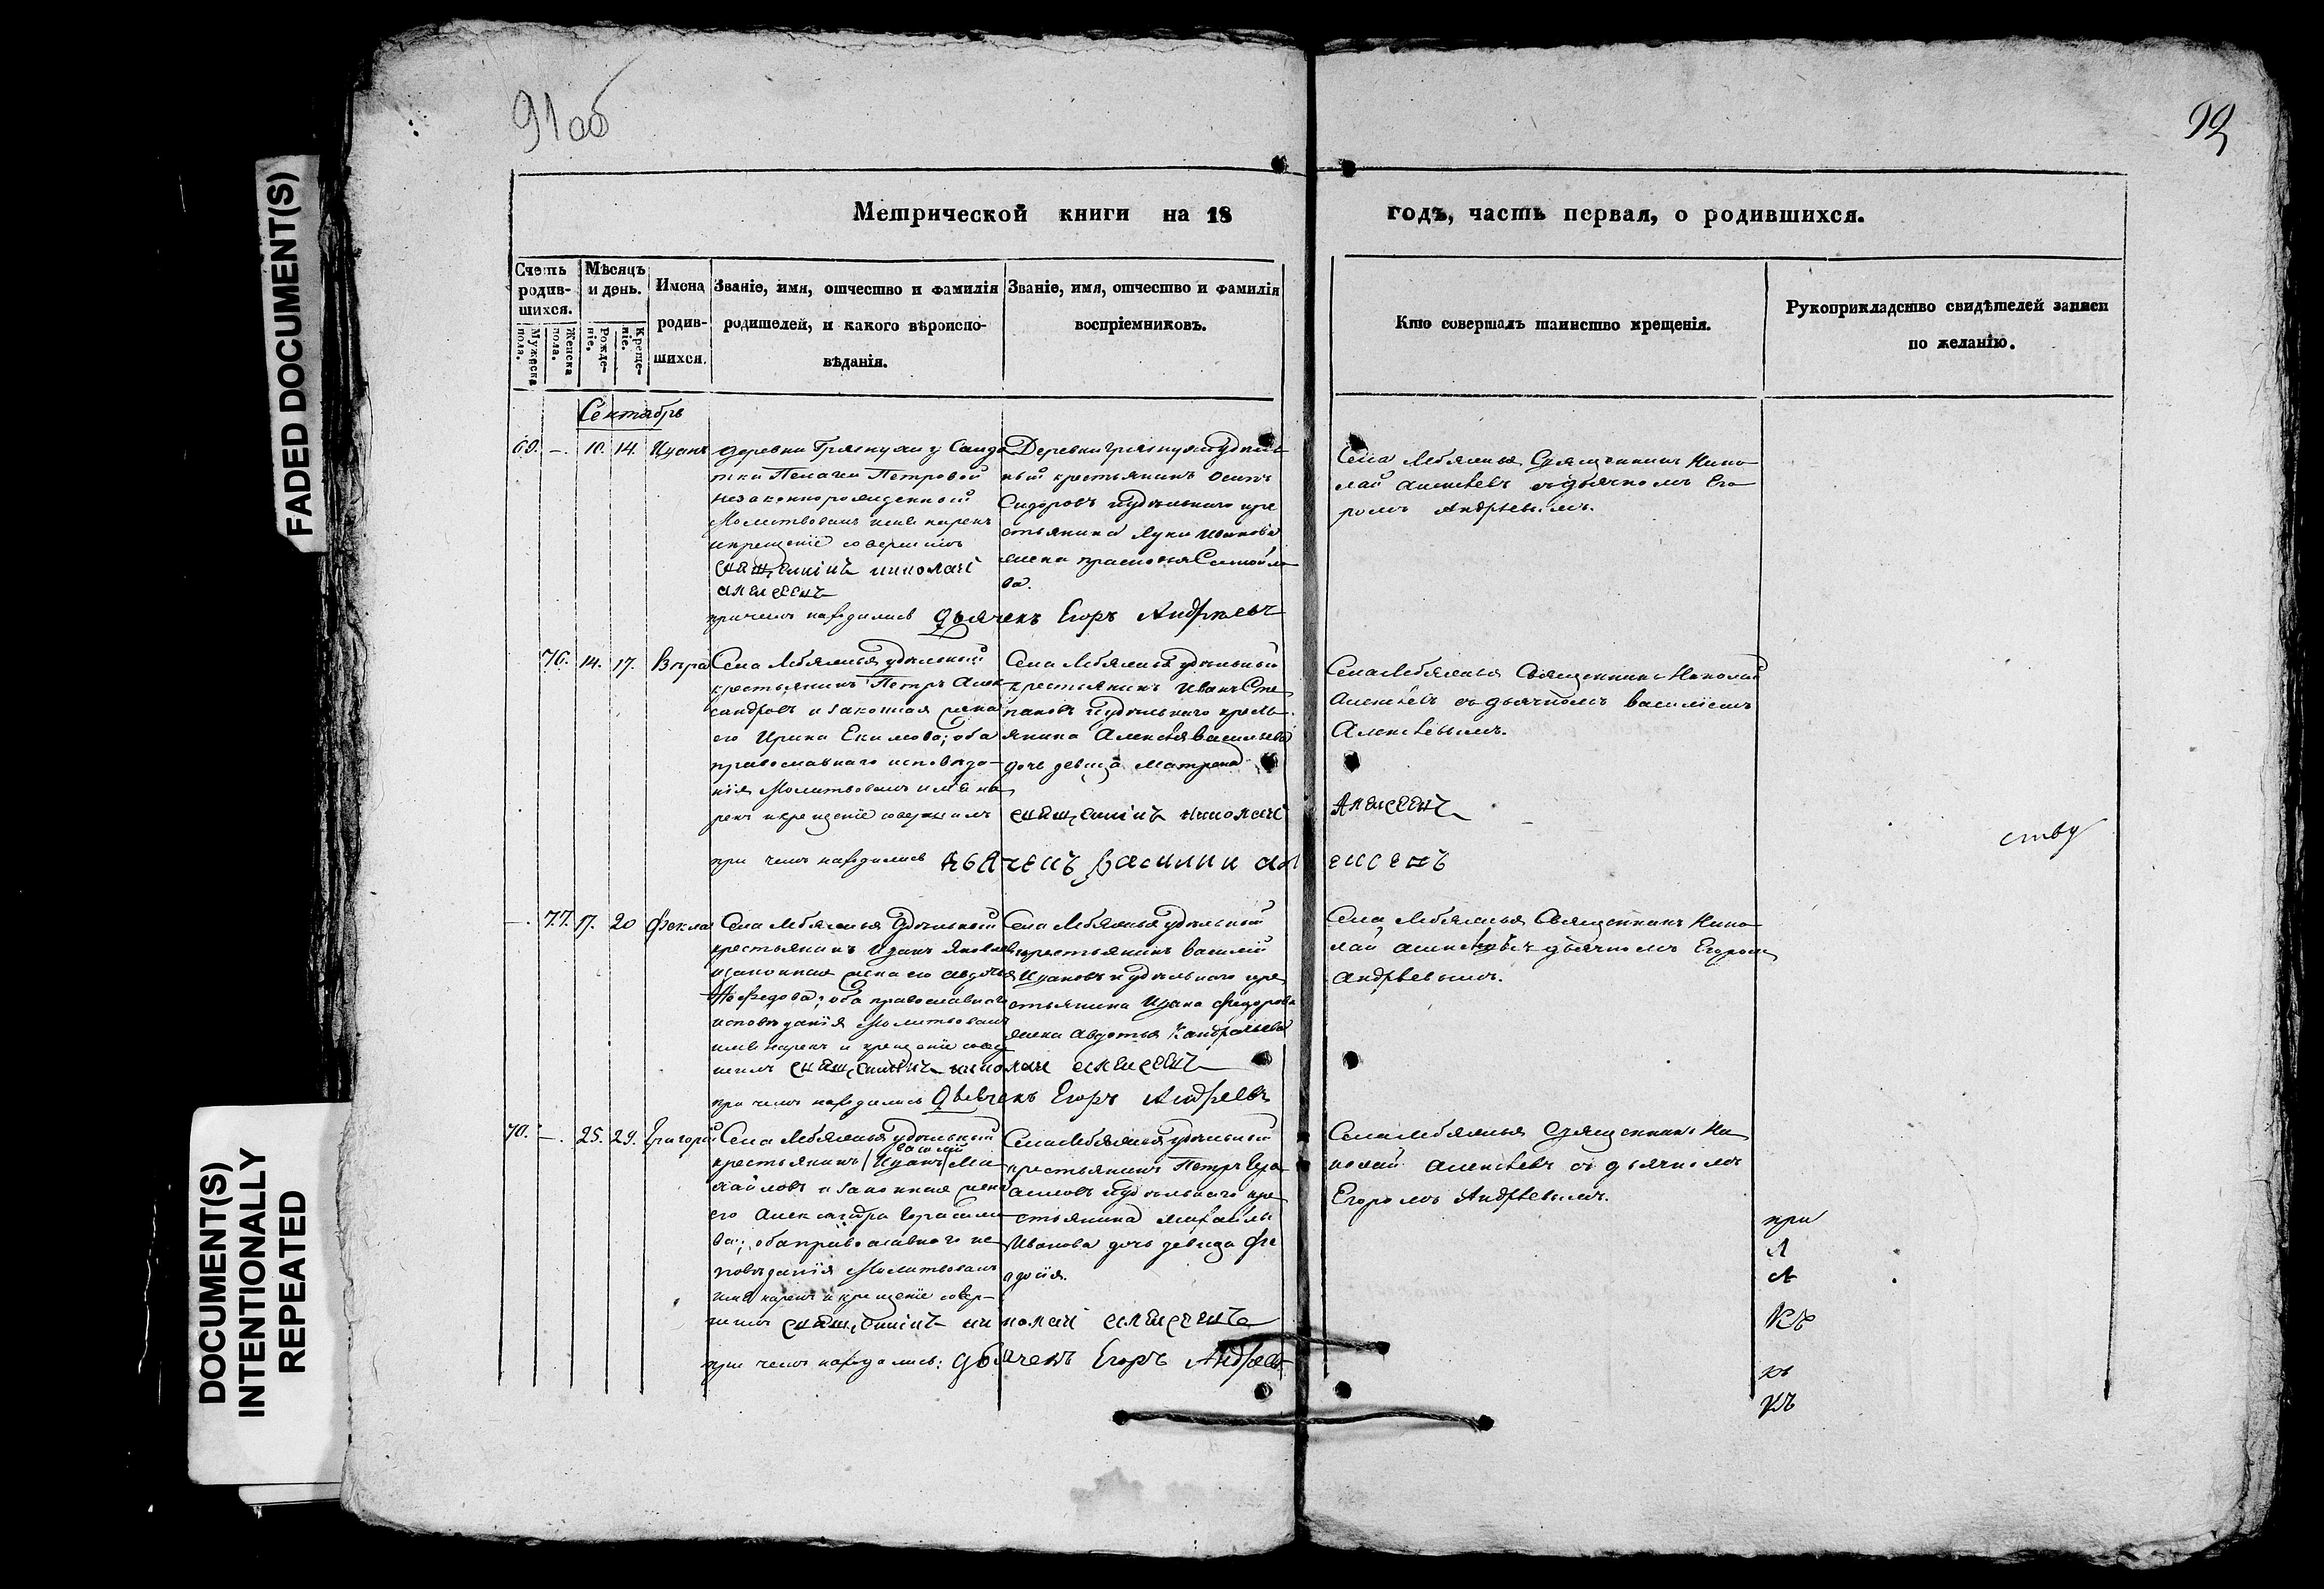 91 об
92
FADED DOCUMENT(S)
DOCUMENT(S)
INTENTIONALLY
REPEATED
Метрической книги на 18 годъ, часть первая, о родившихся.
Счетъ родив-шихся.
Мужеска пола.
Женска пола.
Мѣсяцъ и день.
Рожде-ніе.
Креще-ніе.
Имена родив-шихся.
Званіе, имя, отчество и фамилія родителей, и какого вѣроиспо-вѣданія.
Званіе, имя, отчество и фамилія воспріемниковъ.
Кто совершалъ таинство крещенія.
Рукоприкладство свидѣтелей записи по желанію.
Сентябрь
69. - 10. 14. Иванъ
деревни Грязнухи у Солда
тки Пелагеи Петровой
незаконнорожденный
Молитвовалъ имя нарекъ
и крещеніе совершилъ
священникъ николай
алексеевъ
при чемъ находились дьячекъ Егоръ Андреевъ
Деревни грязнухи удѣль
ный крестьянинъ Осипъ
Сидоровъ и удѣльнаго кре
стьянина Луки Иванова
жена
ва.
Села Лебяжья Священникъ Нико
лай алексѣевъ съ дьячкомъ Его
ромъ Андрѣевымъ.
76. 14. 17. Вѣра
Села Лебяжья удѣльный
крестьянинъ Петръ Алек
сандровъ и законная жена
его Ирина Екимова; оба
православнаго исповѣда-
нія Молитвовалъ имя на
рекъ и крещеніе совершилъ
Села Лебяжья удѣльный
крестьянинъ Иванъ Сте
пановъ и удѣльнаго кресть
янина Алексѣя Васильева
дочь девица Матрена
священникъ николай Алексеевъ
при чемъ находились дьячекъ Василии алексеевъ
Села Лебяжья Священникъ Николай
Алексѣевъ съ дьячкомъ Василіемъ
Алексѣевымъ.
ству
- 77. 17. 20 Фекла
Села Лебяжья Удѣльный
крестьянинъ Иванъ Яковлевъ
и законная жена его авдотья
Нефедова; оба православнаго
исповѣданія Молитвовалъ
имя нарекъ и крещеніе совер
шилъ священникъ николаи алексеевъ
при чемъ находились Дьячекъ Егоръ Андреевъ
Села Лебяжья удѣльный
крестьянинъ Василій
Ивановъ и удѣльнаго кре
стьянина Ивана Федорова
жена Авдотья Кандратьева
Села Лебяжья Священникъ Нико
лай алексѣевъ съ дьячкомъ Егоромъ
Андрѣевымъ.
70. - 25. 29. Григорій
Села Лебяжья удѣльный
василій
крестьянинъ /Иванъ/ Ми
хайловъ и законная жена
его Александра Герасимо
ва; оба православнаго ис
повѣданія Молитвовалъ
имя нарекъ и крещеніе совер-
шилъ священникъ николаи алексеевъ
при чемъ находились: дьячекъ Егоръ Андреевъ
Села Лебяжья удѣльный
крестьянинъ Петръ Гера
симовъ и удѣльнаго кре
стьянина Михайлы
Иванова дочь девица Фе
досия.
Села Лебяжья Священникъ Ни
колай Алексѣевъ съ дьячкомъ
Егоромъ Андрѣевымъ.
при